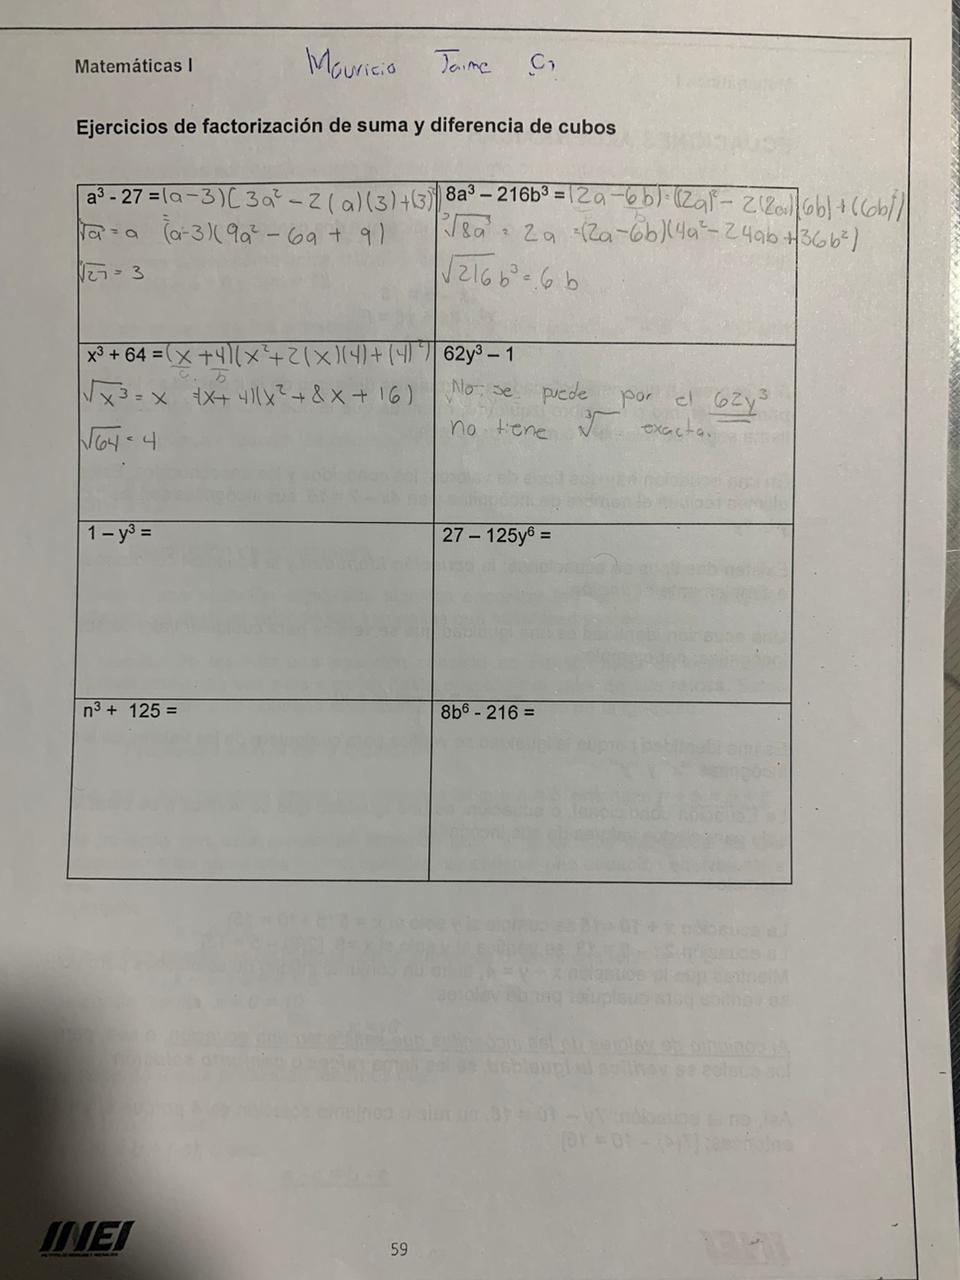 Matemáticas I
Mauricio Jaime
Ejercicios de factorización de suma y diferencia de cubos
a³ - 27 = (a-3)[3a² - 2(a)(3)+(3)²]
∛a = a (a-3)(9a² - 6a + 9)
∛27 = 3
8a³ – 216b³ = (2a-6b)=((2a)² - 2(2a)(6b)+(6b)²)
∛8a³ = 2a =(2a-6b)(4a²-24ab+36b²)
√216b³ = 6b
x³ + 64 = (x+4)(x²+2(x)(4)+(4)²)
a b
√x³ = x =(x+4)(x²+8x+16)
√64 = 4
62y³ – 1
No se puede por el 62y³
no tiene ∛ exacta.
1 – y³ =
27 – 125y⁶ =
n³ + 125 =
8b⁶ - 216 =
INEI
59